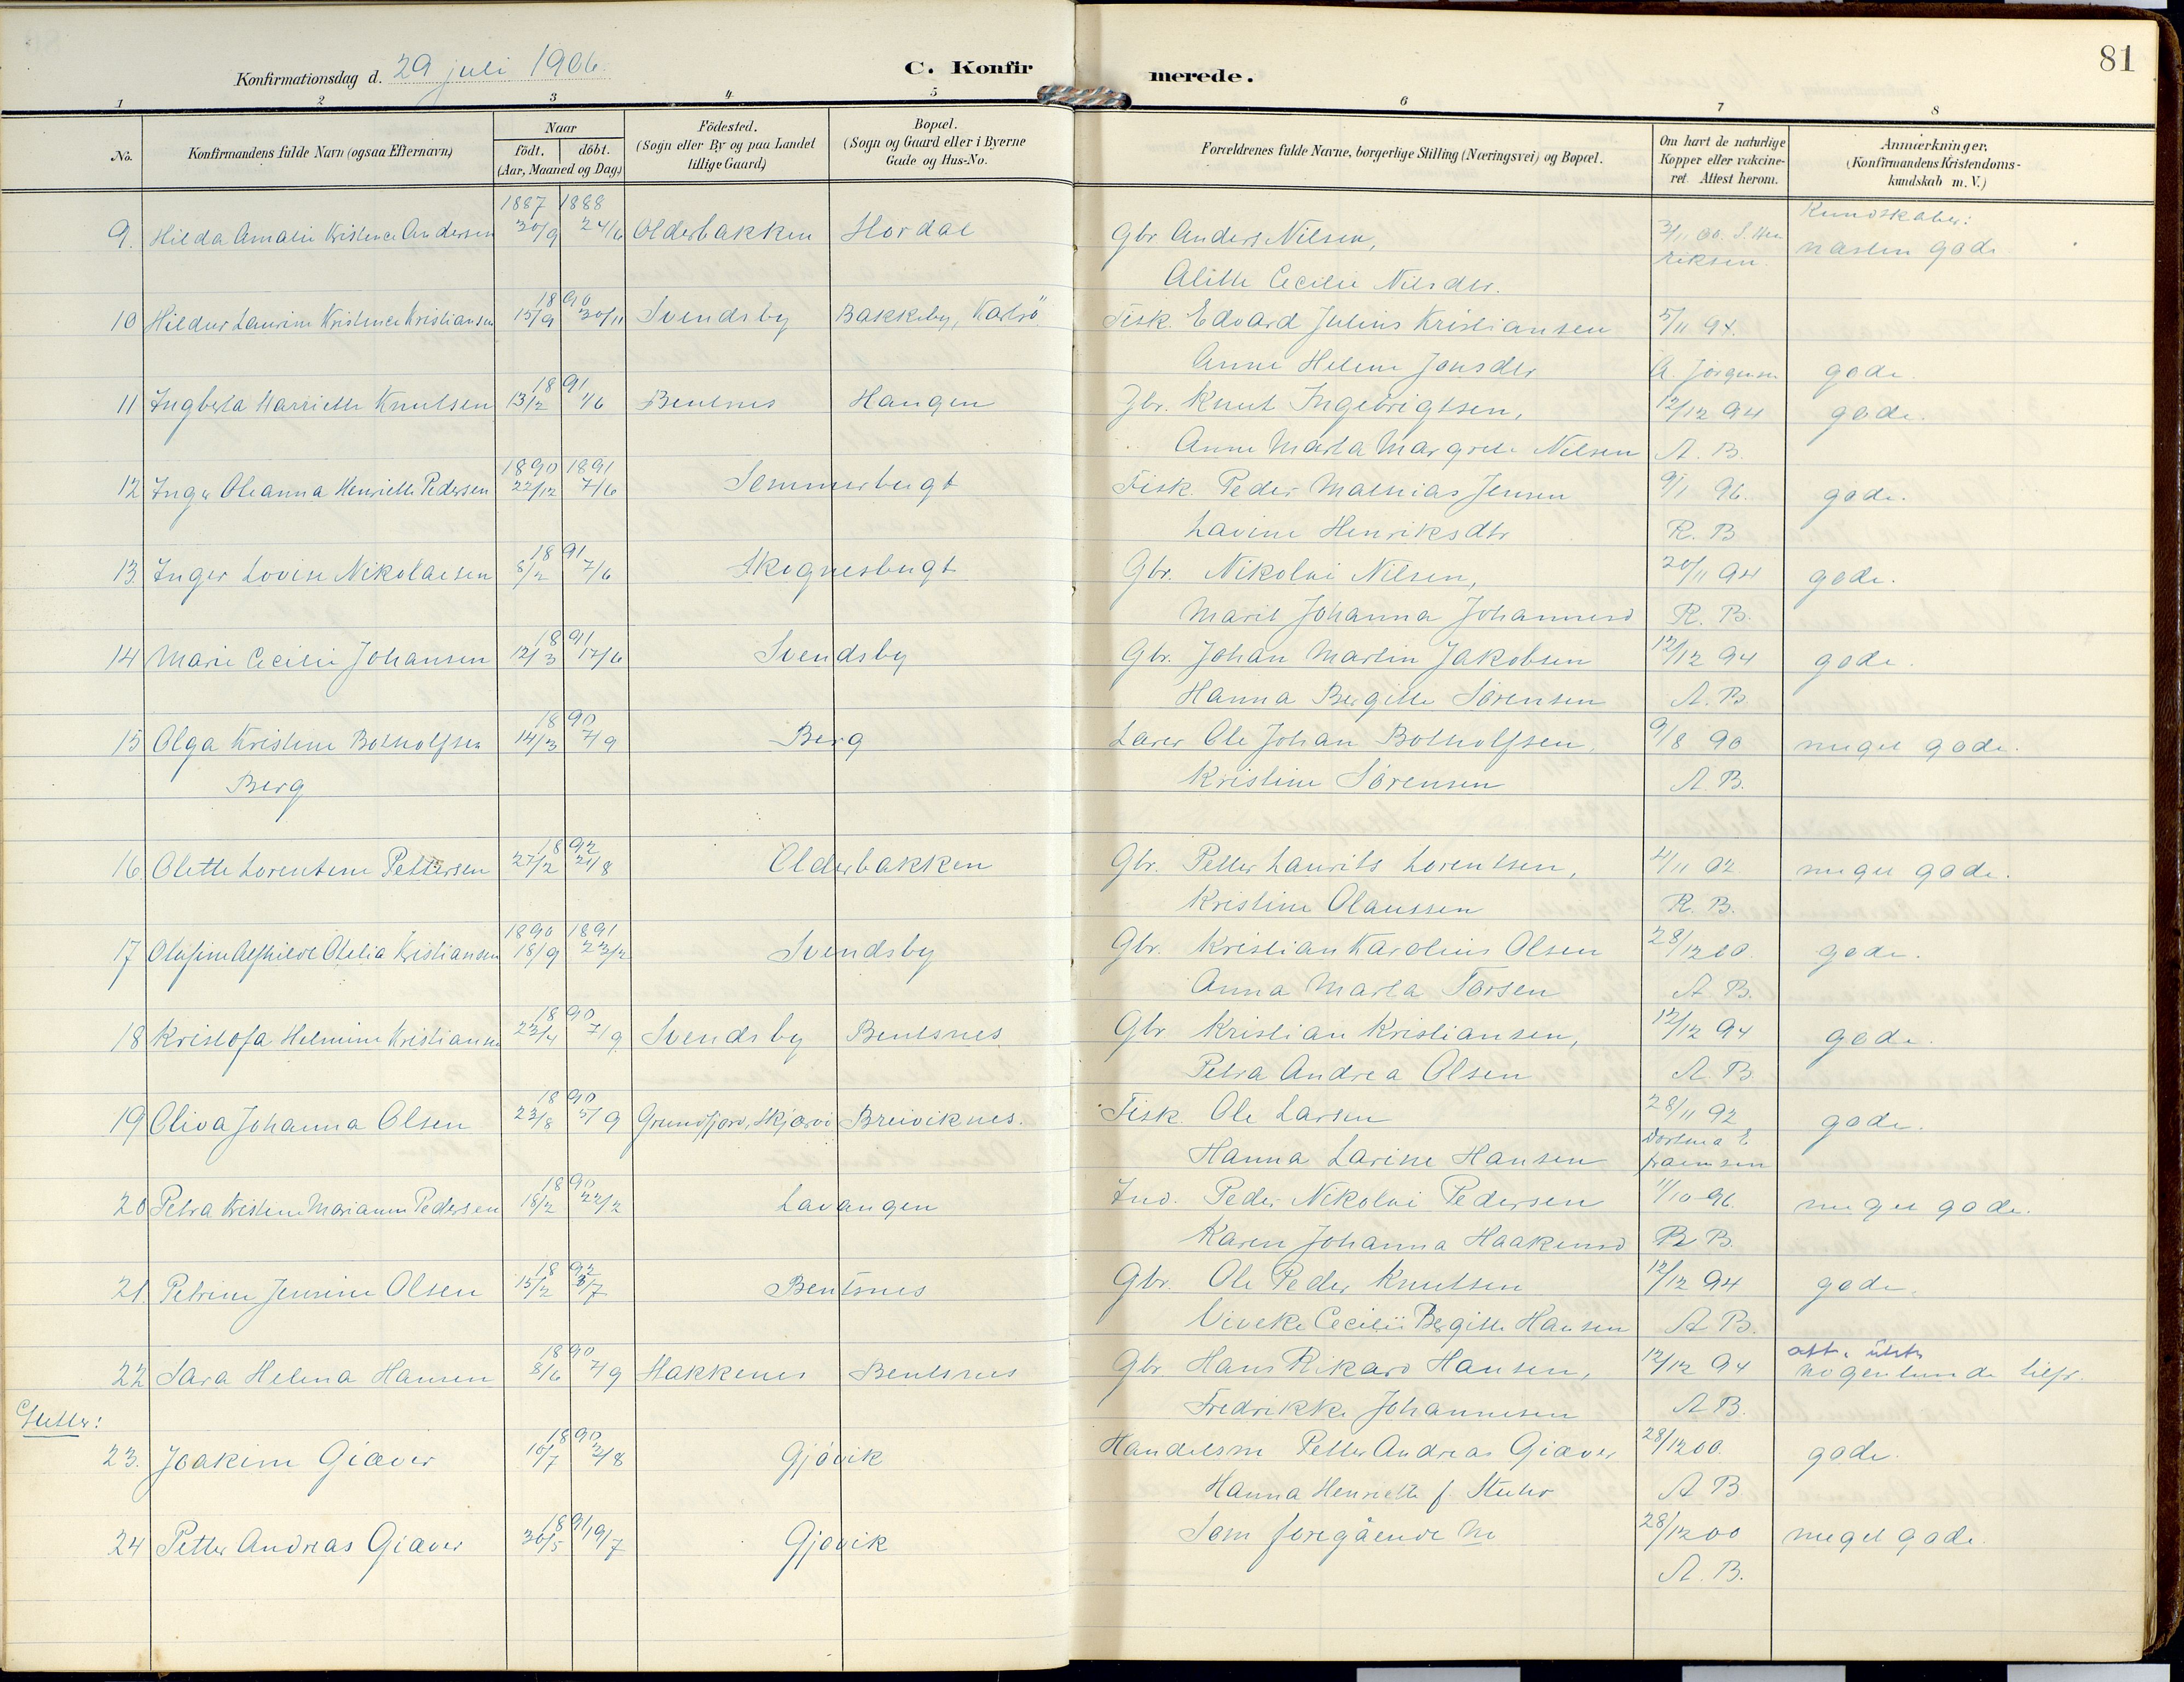 81
Konfirmationsdag d. 29 juli 1906.
C. Konfirmerede.
1 2 3 4 5 6 7 8
No. Konfirmandens fulde Navn (ogsaa Efternavn) Naar födt. döbt. (Aar, Maaned og Dag) Födested. (Sogn eller By og paa Landet tillige Gaard) Bopæl. (Sogn og Gaard eller i Byerne Gade og Hus-No. Forældrenes fulde Navne, borgerlige Stilling (Næringsvei) og Bopæl. Om havt de naturlige Kopper eller vakcineret. Attest herom. Anmærkninger. (Konfirmandens Kristendomskundskab m. V.)
1887 1888 Kundskaber:
9. Hilda Amalie Kristence Andersen 30/9 24/6 Olderbakken Hordal Gbr. Anders Nilsen, næsten gode
Alitte Cecilie Nilsdtr.
1890
10 Hildur Laurine Kristence Kristiansen 15/9 30/11 Svendsby Bakkeby, Karlsö Fisk. Edvard Julius Kristiansen 5/11 94.
Anne Helene Jonsdtr A. Jörgensen gode
1891
11 Ingberta Harriette Knutsen 13/2 1/6 Bentnes Haugen Gbr. Knut Ingebrigtsen, 12/12 94 gode.
Anne Marta Margrete Nilsen A. B.
1890 1891
12 Inger Oleanna Henriette Pedersen 22/12 7/6 Semmerbugt Fisk. Peder Mathias Jensen 9/1 96. gode.
Lavine Henriksdtr R. B
1891
13 Inger Lovise Nikolaisen 8/2 7/6 Skognesbugt Gbr. Nikolai Nilsen, 20/11 94 gode.
Marit Johanna Johannesd R. B.
1891
14 Marie Cecilie Johansen 12/3 17/6 Svendsby Gbr. Johan Martin Jakobsen 12/12 94 gode.
Hanna Bergitte Sörensen A. B
1890
15 Olga Kristine Botholfsen 14/3 7/9 Berg Lærer Ole Johan Botholfsen, 9/8 90 meget gode.
Berg Kristine Sörensen A. B.
1892
16 Olette Lorentine Pettersen 27/2 21/8 Olderbakken Gbr. Petter Laurits Lorentsen, 4/11 02 meget gode.
Kristine Olaussen R. B.
1890 1891
17 Olufine Alfhilde Otelia Kristiansen 18/9 23/2 Svendsby Gbr. Kristian Karolius Olsen 28/12 00. gode.
Anna Marta Torsen A B.
1890
18 Kristofa Helmine Kristiansen 22/4 7/9 Svendsby Bentsnes Gbr Kristian Kristiansen, 12/12 94 gode.
Petra Andrea Olsen A. B
1890
19 Oliva Johanna Olsen 23/8 5/9 Grundfjord, Skjærvö Breiviknes. Fisk. Ole Larsen 28/11 92 gode.
Hanna Larine Hansen
1890
20 Petra Kristine Marianne Pedersen 18/2 22/2 Lavangen Ind. Peder Nikolai Pedersen 11/10 96. meget gode.
Karen Johanna Haakensd R B.
1892
21. Petrine Jensine Olsen 15/2 3/7 Bentsnes Gbr. Ole Peder Knutsen 12/12 94 gode.
Viveke Cecilie Bergitte Hansen A B.
1890
22 Sara Helena Hansen 8/6 7/9 Hakkenes Bentsnes Gbr. Hans Rikard Hansen, 12/12 94 nogenlunde tilfr.
Fredrikke Johannesen A B.
Gutter:
1890
23. Joakim Giæver 10/7 3/8 Gjövik Handelsm Petter Andreas Giæver 28/12 00. gode.
Hanna Henriette f. Stuhr A B
1891
24 Petter Andreas Giæver 30/5 19/7 Gjövik Som foregående No 28/12 00 meget gode.
A. B.